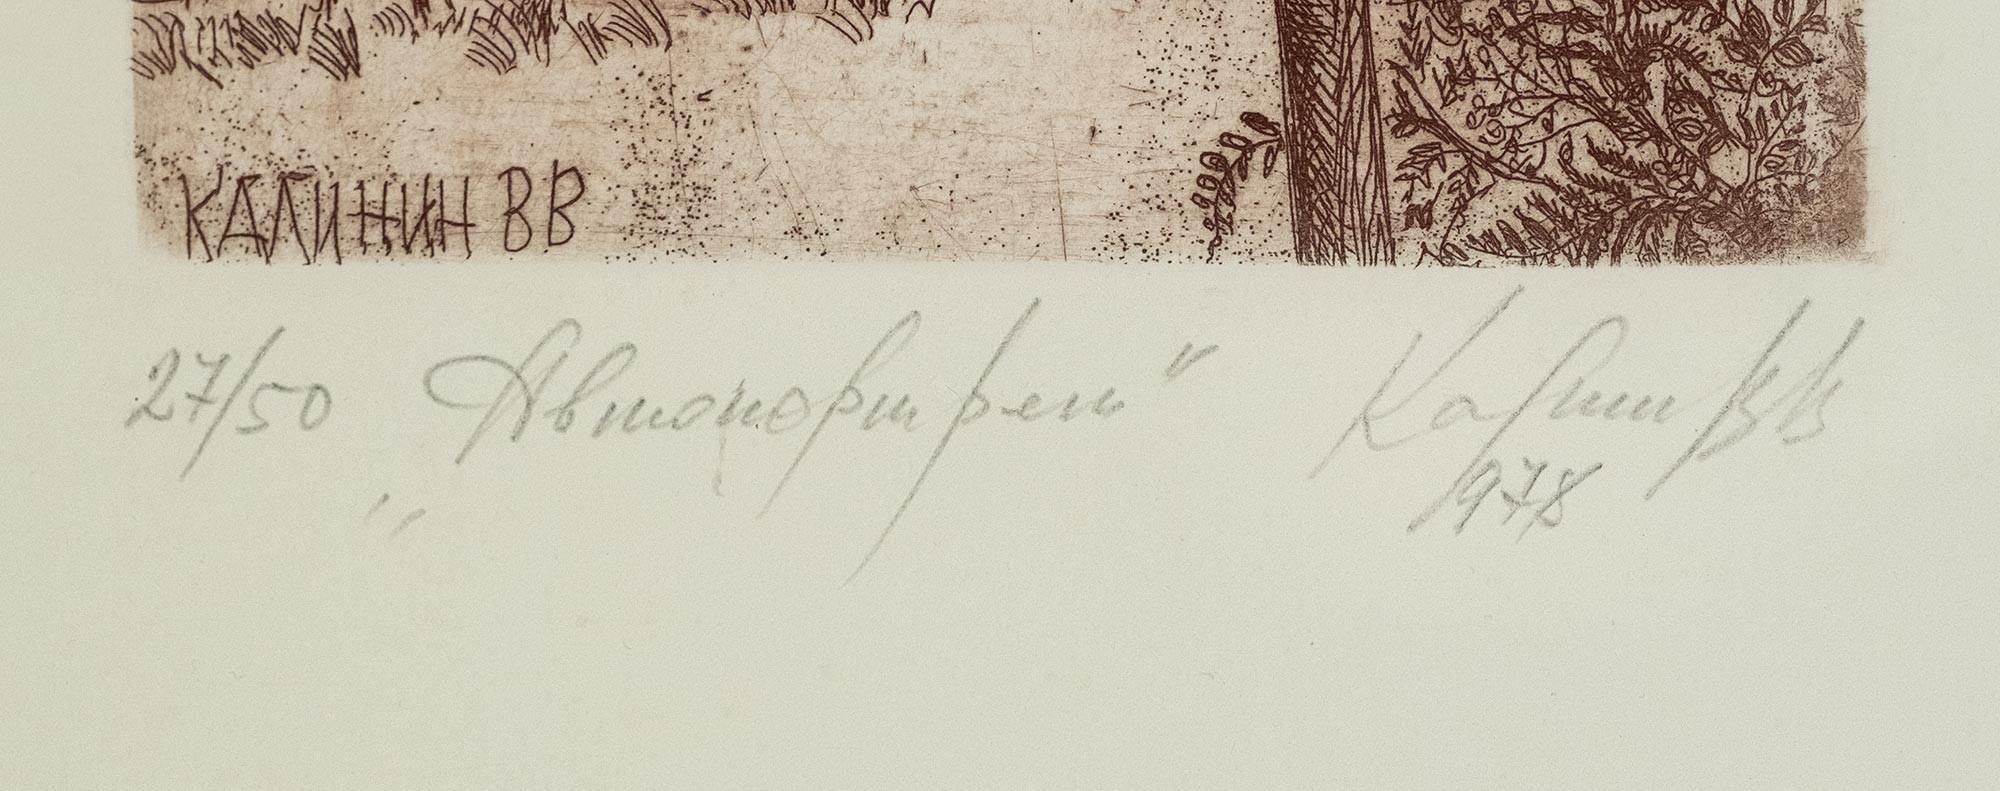 КАЛИНИН ВВ
27/50 „Автопортрет" Калинин ВВ
1978